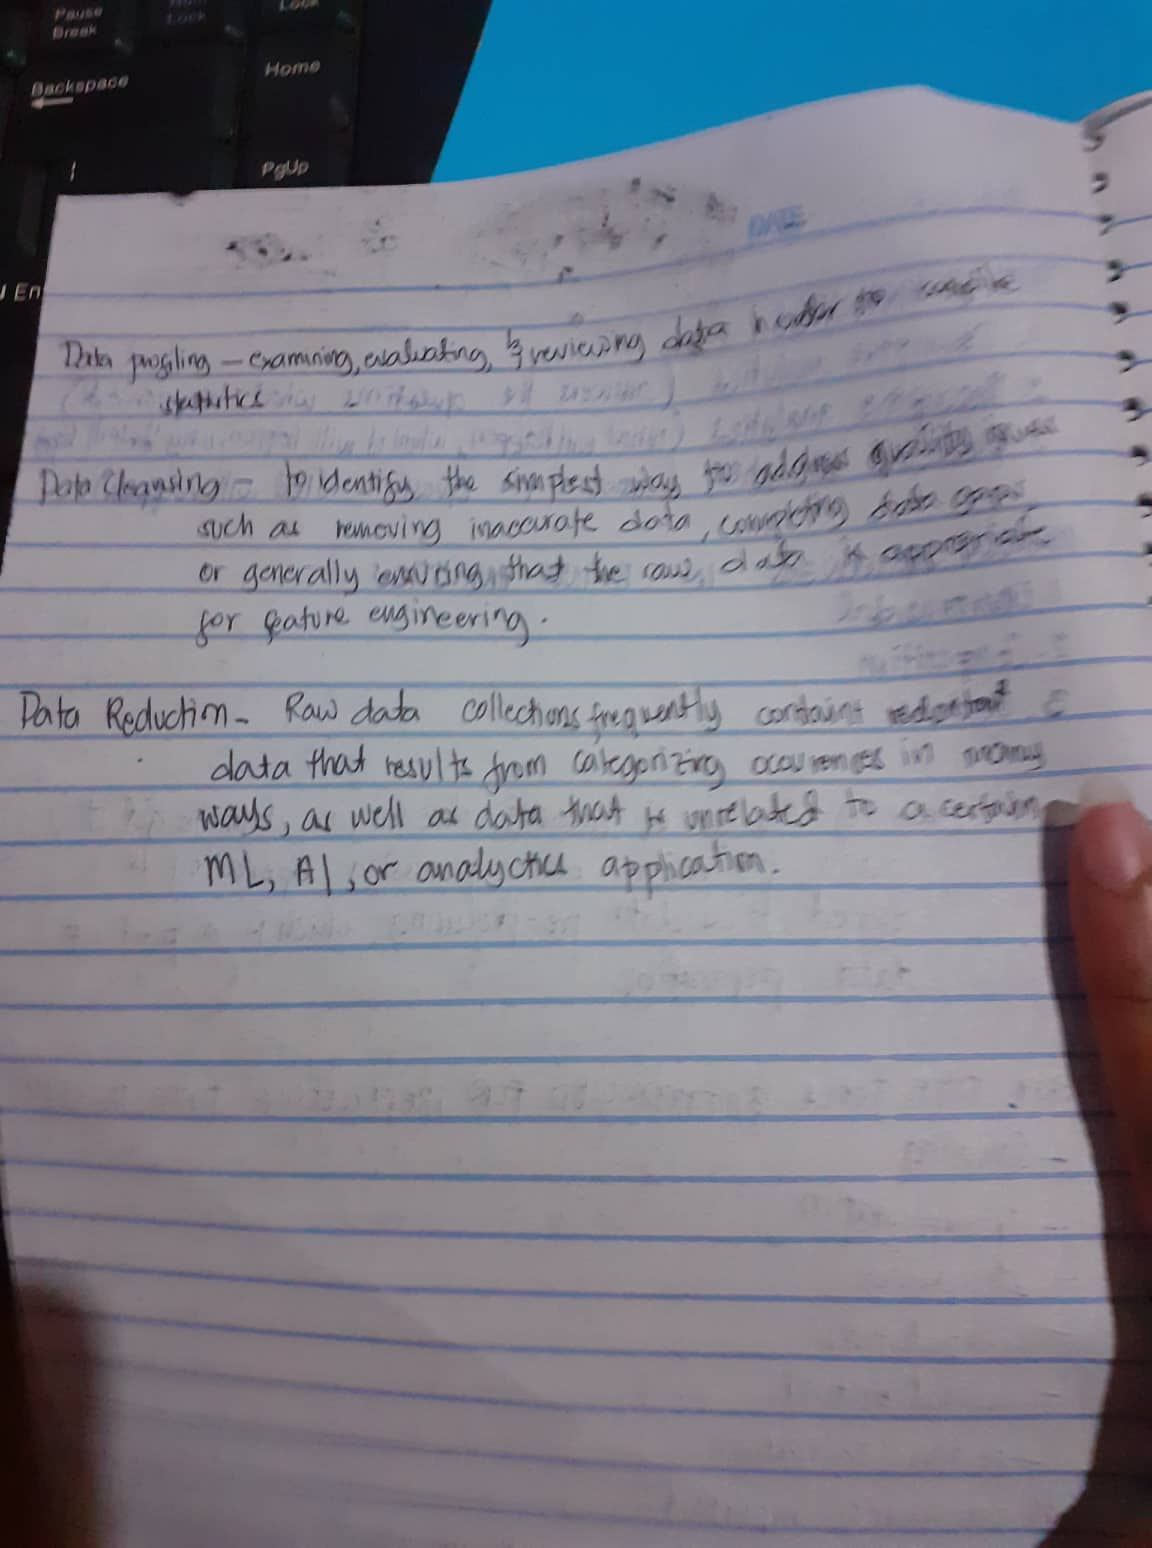 Pause
Break
Lock
Lock
Backspace
Home
PgUp
En
DATE
Data profiling - examining, evaluating, & reviewing data in order to
statistics
Data Cleansing - to identify the simplest way to address quality issues
such as removing inaccurate data, completing data gaps
or generally ensuring that the raw data is appropriate
for feature engineering.
Data Reduction - Raw data collections frequently contains redundant
data that results from categorizing occurrences in many
ways, as well as data that is unrelated to a certain
ML, AI, or analytics application.